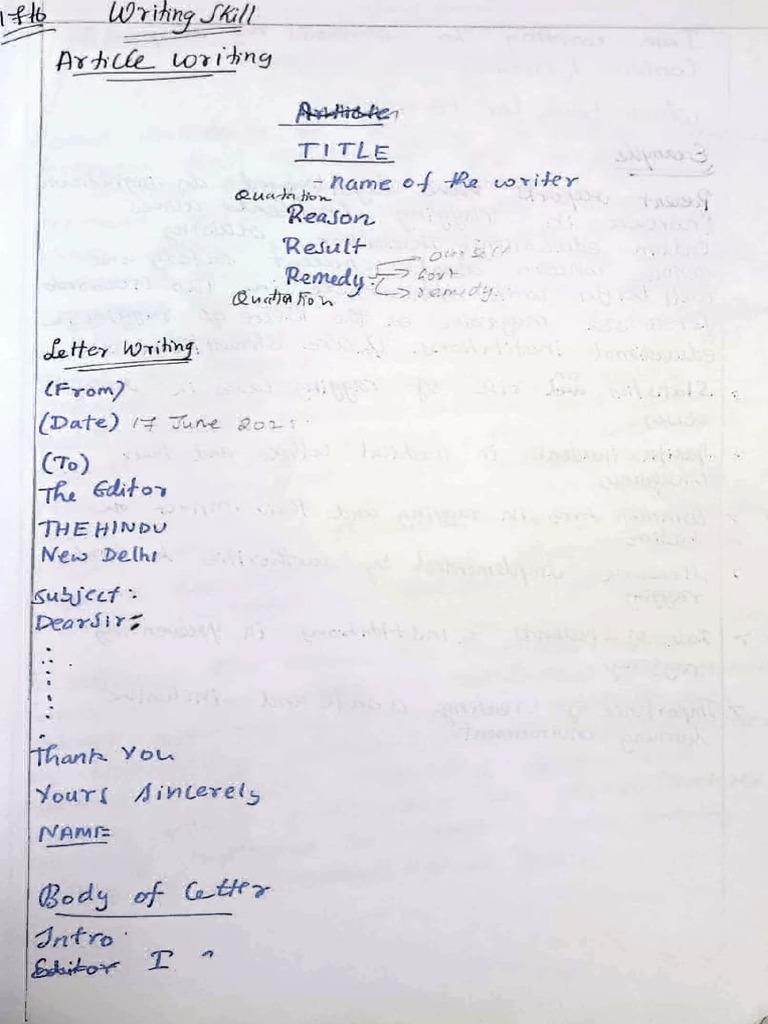 Writing Skill
Article writing
TITLE
- Name of the writer
Quatation
Reason
Result
Remedy
ourself
Govt
remedy
Quatation
Letter Writing.
(From)
(Date) 17 June
(To)
The Editor
THE HINDU
New Delhi
Subject:
Dear Sir:
Thank You
Yours Sincerely
NAME
Body of Letter
Intro
Editor I